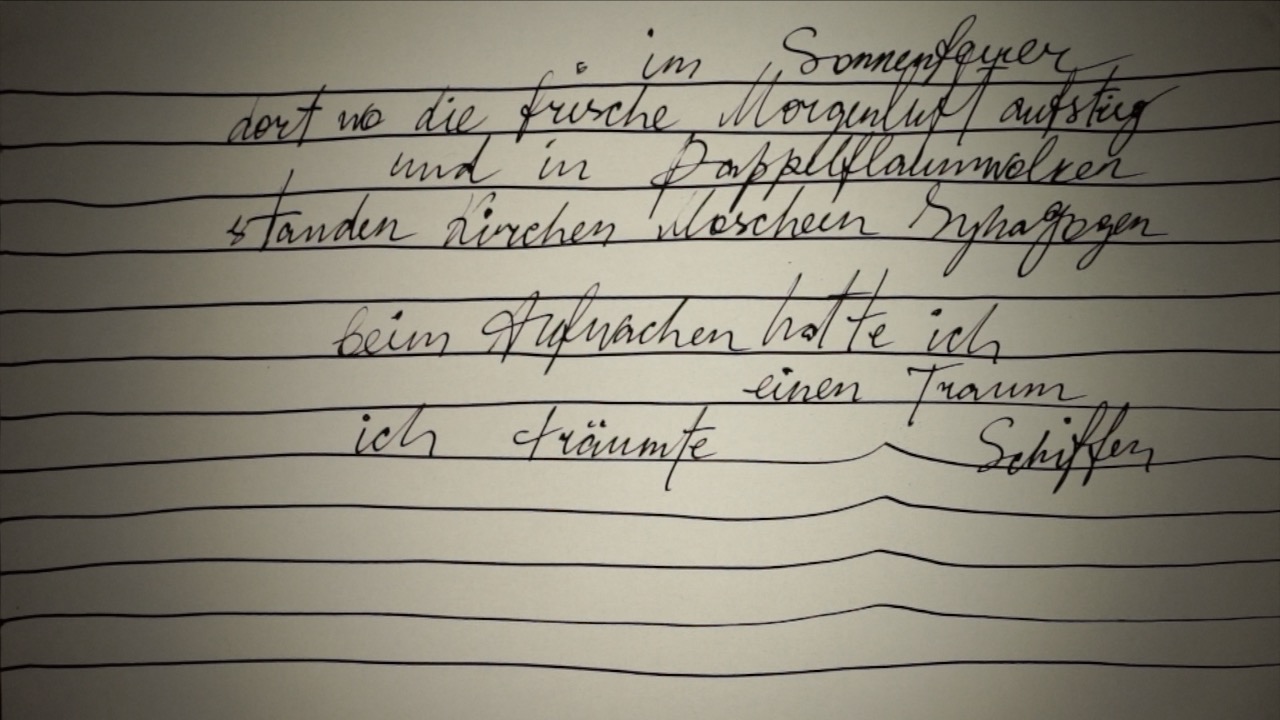 im Sonnenfeuer
dort wo die frische Morgenluft aufstieg
und in Pappelflaumwolken
standen Kirchen Moscheen Synagogen
beim Aufwachen hatte ich
einen Traum
ich träumte Schiffen